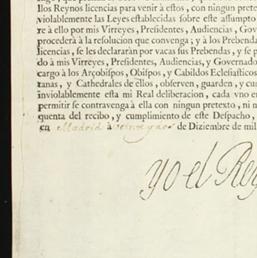 llos Reynos licencias para venir à estos, con ningun pretex
violablemente las Leyes establecidas sobre este assumpto
re à ello por mis Virreyes, Presidentes, Audiencias, Gov
procederà à la resolucion que convenga; y à los Prebenda
licencia, se les declararàn vacas sus Prebendas, y se p
do à mis Virreyes, Presidentes, Audiencias, y Governado
cargo à los Arçobispos, Obispos, y Cabildos Eclesiastico
tanas, y Cathedrales de ellos, observen, guarden, y cum
inviolablemente esta mi Real deliberacion, cada vno en
permitir se contravenga à ella con ningun pretexto, ni n
quenta del recibo, y cumplimiento de este Despacho,
en Madrid à de Diziembre de mil
yo el Rey